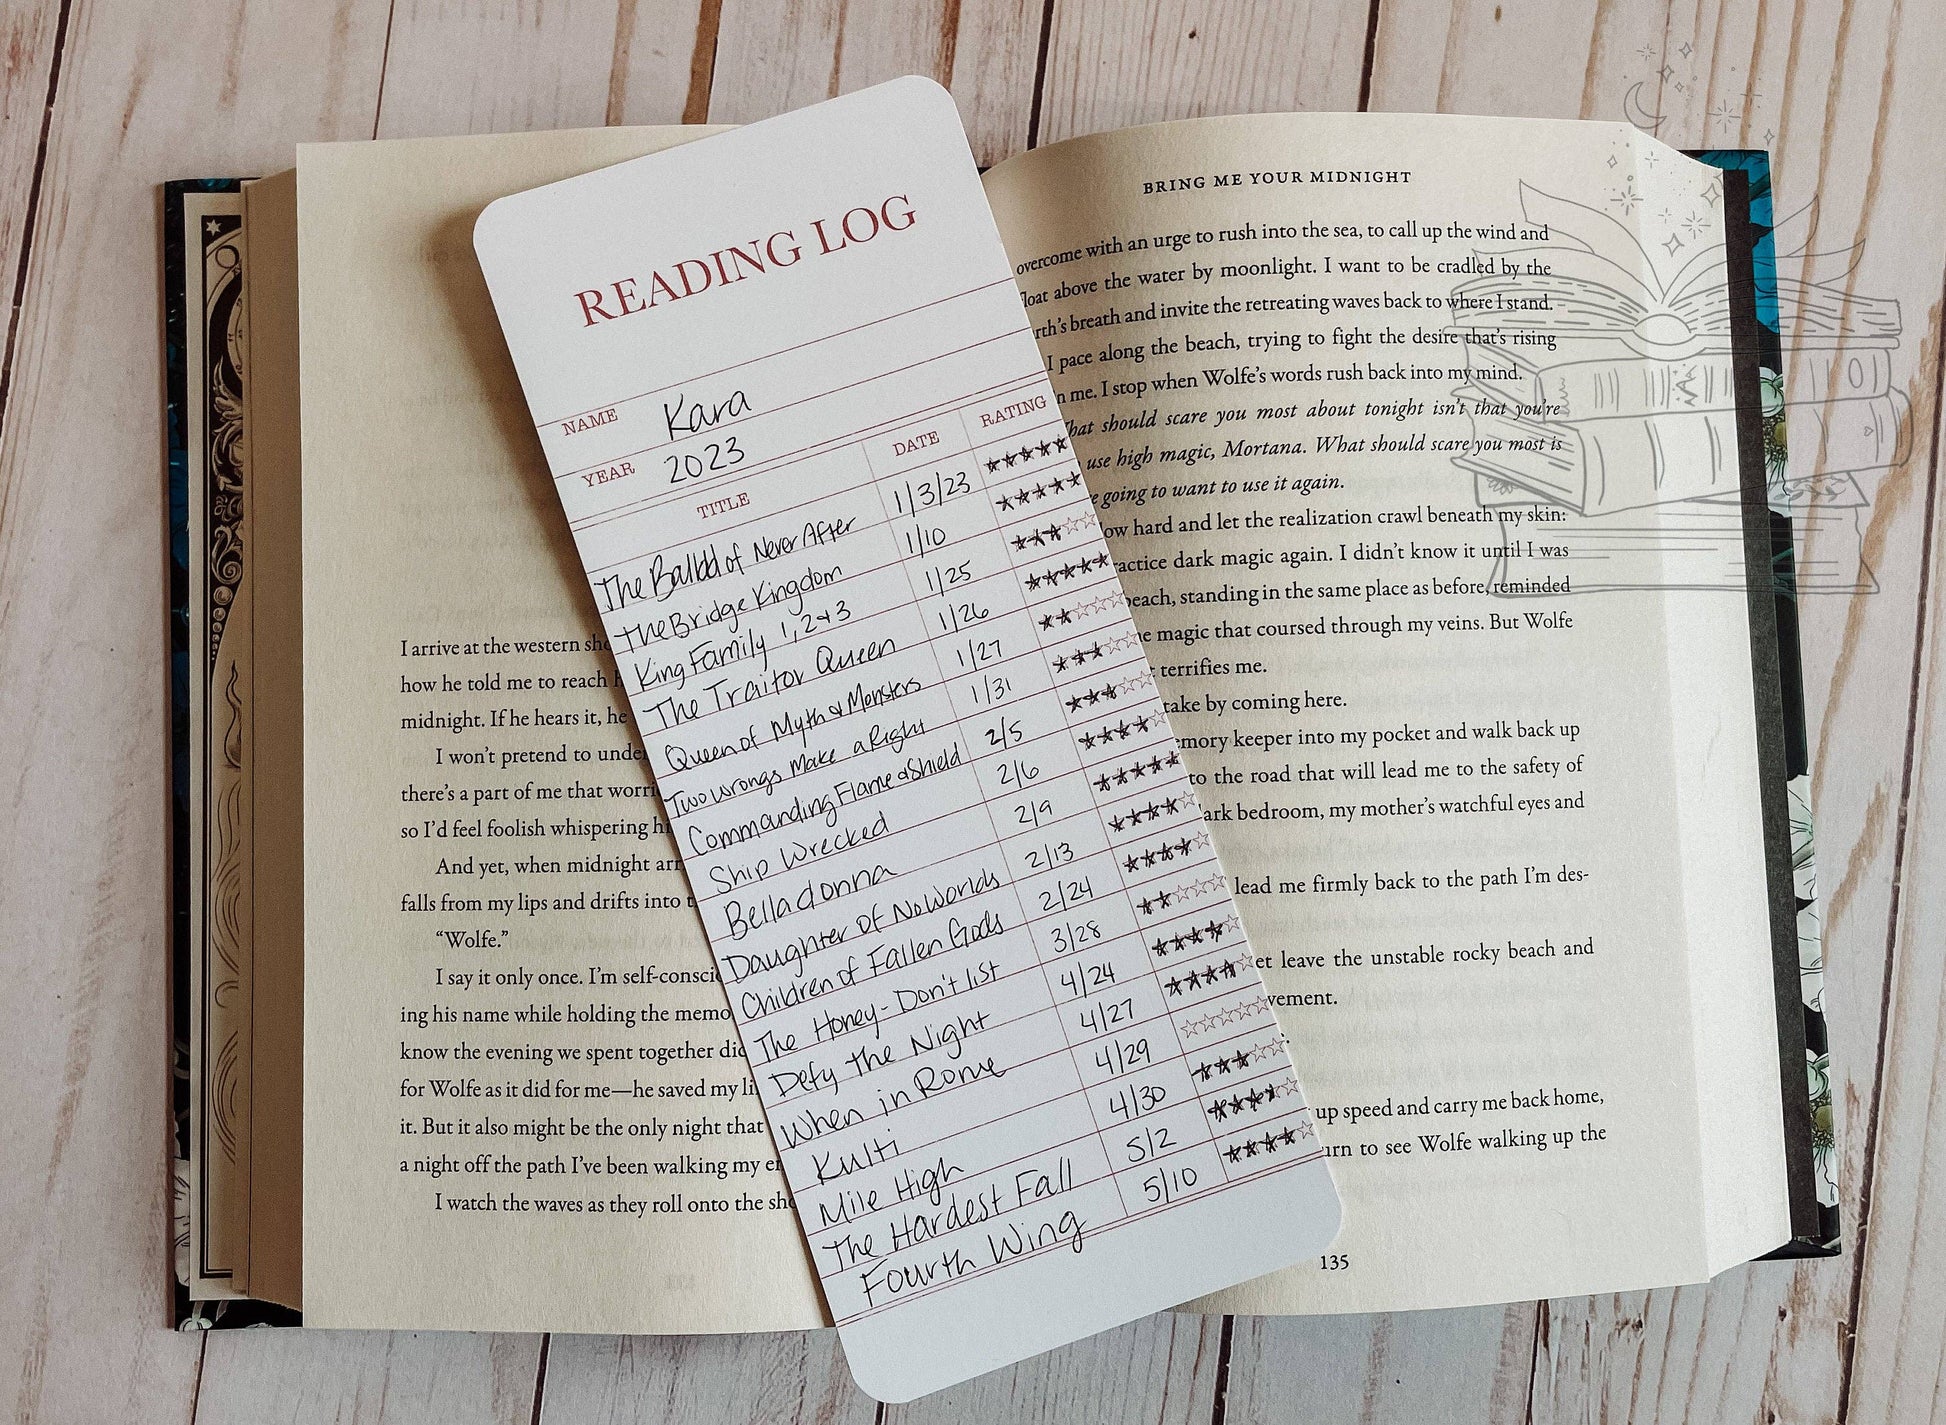 READING LOG
NAME Kara
YEAR 2023
TITLE DATE RATING
The Ballad of Never After 1/3/23
The Bridge Kingdom 1/10
King Family 1, 2 & 3 1/25
The Traitor Queen 1/26
Queen of Myth & Monsters 1/27
Two wrongs make a Right 1/31
Commanding Flame & Shield 2/5
Ship Wrecked 2/6
Belladonna 2/9
Daughter of No Worlds 2/13
Children of Fallen Gods 2/24
The Honey-Don't list 3/28
Defy the Night 4/24
When in Rome 4/27
Kulti 4/29
Mile High 4/30
The Hardest Fall 5/2
Fourth Wing 5/10
I arrive at the western
how he told me to reach
midnight. If he hears it, he
I won't pretend to
there's a part of me that
so I'd feel foolish whispering
And yet, when midnight
falls from my lips and drifts into
“Wolfe.”
I say it only once. I'm
ing his name while holding the
know the evening we spent together
for Wolfe as it did for me—he saved my
it. But it also might be the only night that
a night off the path I've been walking my
I watch the waves as they roll onto the
BRING ME YOUR MIDNIGHT
overcome with an urge to rush into the sea, to call up the wind and
float above the water by moonlight. I want to be cradled by the
breath and invite the retreating waves back to where I stand.
I pace along the beach, trying to fight the desire that's rising
me. I stop when Wolfe's words rush back into my mind.
should scare you most about tonight isn't that you're
use high magic, Mortana. What should scare you most is
going to want to use it again.
hard and let the realization crawl beneath my skin:
dark magic again. I didn't know it until I was
standing in the same place as before, reminded
magic that coursed through my veins. But Wolfe
terrifies me.
by coming here.
keeper into my pocket and walk back up
to the road that will lead me to the safety of
bedroom, my mother's watchful eyes and
lead me firmly back to the path I'm des-
leave the unstable rocky beach and
up speed and carry me back home,
to see Wolfe walking up the
135